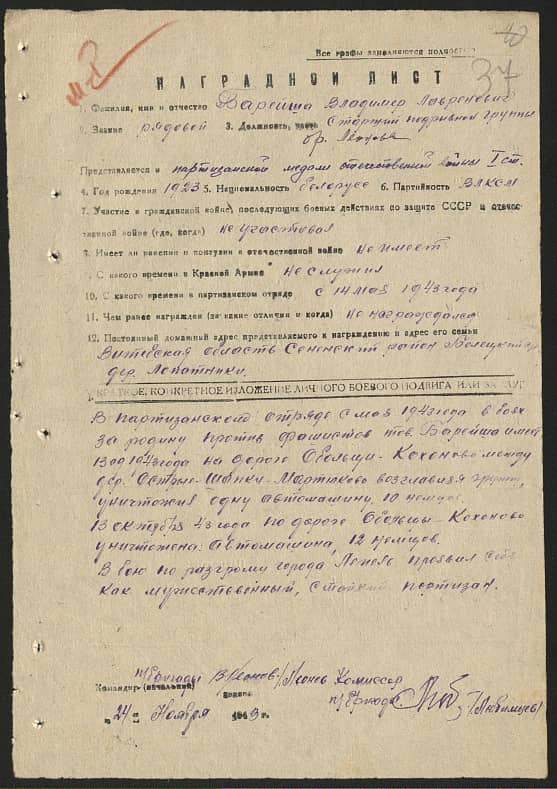 Все графы заполняются полностью
37
НАГРАДНОЙ ЛИСТ
1. Фамилия, имя и отчество Варейша Владимир Лавренович
2. Звание рядовой 3. Должность, часть Старший подрывной группы
бр. Леонова
Представляется к партизанской медали отечественной войны I ст.
4. Год рождения 1923 5. Национальность белорусс 6. Партийность ВЛКСМ
7. Участие в гражданской войне, последующих боевых действиях по защите СССР и отече-
ственной войне (где, когда) не участвовал
8. Имеет ли ранения и контузии в отечественной войне не имеет
9. С какого времени в Красной Армии не служил
10. С какого времени в партизанском отряде с 14 мая 1943 года
11. Чем ранее награжден (за какие отличия и когда) не награждался
12. Постоянный домашний адрес представляемого к награждению и адрес его семьи
Витебская область Сененский район
дер. Лопатники.
КРАТКОЕ, КОНКРЕТНОЕ ИЗЛОЖЕНИЕ ЛИЧНОГО БОЕВОГО ПОДВИГА ИЛИ ЗАСЛУГ
В партизанском отряде с мая 1943 года в боях
за родину против фашистов тов. Варейша имеет
1943 года на дороге Обольцы-Коханово между
дер. Мартюхово возглавляя группу,
уничтожил одну автомашину, 10 немцев.
13 октября 43 года по дороге Обольцы-Коханово
уничтожена: Автомашина, 12 немцев.
В бою по разгрому города Лепель проявил себя
как мужественный, стойкий партизан.
п/бригады /Леонов/ Комиссар
Командир (начальник)
п/бригады /Любимцев/
"24" Ноября 1943 г.